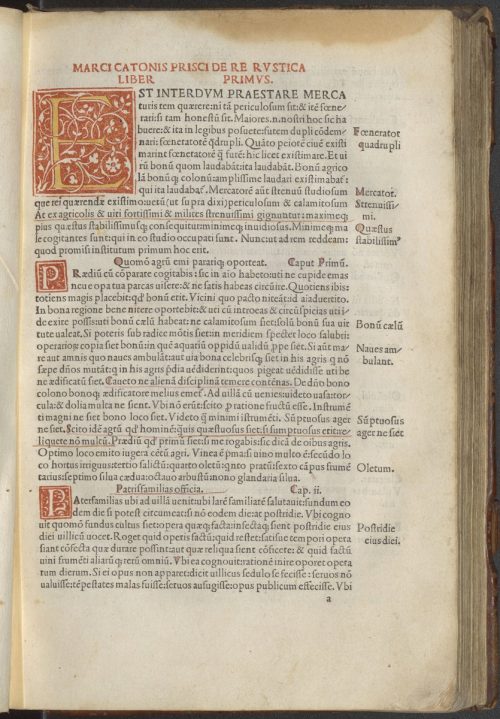 MARCI CATONIS PRISCI DE RE RVSTICA
LIBER PRIMVS.
EST INTERDVM PRAESTARE MERCA
turis tem quærere:ni tã periculosum sit:& itẽ fœne-
rari:si tam honestũ sit. Maiores.n.nostri hoc sic ha
buere:& ita in legibus posuete:futem dupli cõdem-
nari:fœneratorẽ qdrupli. Quãto peiorẽ ciuẽ existi
marint fœneratorẽ q̃ furẽ:hic licet existimare. Et ui
rũ bonũ quom laudabãt:ita laudabãt. Bonũ agrico
lã bonũq; colonũ:amplissime laudari existimabat̃:
qui ita laudabat̃. Mercatorẽ aũt strenuũ studiosum
que rei quærendæ existimo:uetũ(ut supra dixi)periculosum & calamitosum
At ex agticolis & uiti fortissimi & milites strenuissimi gignuntur:maximeq;
pius quæstus stabilissimusq; consequitur:minimeq; inuidiosus. Minimeq; ma
le cogitantes sunt:qui in eo studio occupati sunt. Nunc:ut ad rem teddeam:
quod promisi institutum primum hoc erit.
Fœnetatot
quadrupli
Mercatot.
Sttenuissi-
mi.
Quæstus
stabilissimꝰ
Quomõ agrũ emi paratiq; oporteat. Caput Primũ.
PRædiũ cũ cõparate cogitabis:sic in aĩo habeto:uti ne cupide emas
neue opa tua parcas uisere:& ne satis habeas circũire. Quotiens ibis:
totiens magis placebit:qd' bonũ erit. Vicini quo pacto niteãt:id aĩaduertito.
In bona regione bene nitere oportebit:& uti cũ introeas & circũspicias uti i-
de exire possis:uti bonũ cælũ habeat:ne calamitosum siet:solũ bonũ sua uir
tute ualeat. Si poteris sub radice mõtis siet:in meridiem spectet loco salubri:
operarioꝝ copia siet bonũ:in quẽ aquariũ oppidũ ualidũ ppe siet. Si aũt ma-
re aut amnis quo naues ambulãt:aut uia bona celebrisq; siet in his agris q nõ
sæpe dños mutãt:q in his agris p̃dia uẽdiderint:quos pigeat uẽdidisse uti be
ne ædificatũ siet. Caueto ne alienã disciplinã temere contẽnas. De dño bono
colono bonoq; ædificatore melius emet̃. Ad uillã cũ uenies:uideto uasa:tor-
cula:& dolia multa ne sient. Vbi nõ erũt:scito p ratione fructũ esse. Instrumẽ
ti magni ne siet bono loco siet. Videto q̃ minimi istrumẽti. Sũptuosus ager
ne siet. Scito idẽ agrũ qd' hominẽ:quis quæstuosus siet:si sumptuosus erit:re-
liquete nõ multũ. Prædiũ qd' primũ siet:si me rogabis:sic dicã de oibus agris.
Optimo loco emito iugera cẽtũ agri. Vinea ẽ pma:si uino multo ẽ:secũdo lo
co hortus irriguus:tertio salictũ:quarto oletũ:qnto pratũ:sexto cãpus frumẽ
tarius:septimo silua cædua:octauo arbustũ:nono glandaria silua.
Bonũ cælũ
Naues am-
bulant.
Sũptuosus
ager ne siet
Oletum.
Patrisfamilias officia. Cap. ii.
PAterfamilias ubi ad uillã uenit:ubi larẽ familiarẽ salutauit:fundum eo
dem die si potest circumeat:si nõ eodem die:at postridie. Vbi cogno
uit quomõ fundus cultus siet:opera quæq; facta:infectaq; sient postridie eius
diei uillicũ uocet. Roget quid operis factũ:quid restet:satisue tempori opera
siant cõfecta quæ durate possint:aut quæ reliqua sient cõficere:& quid factũ
uini frumẽti aliarũq; rerũ omniũ. Vbi ea cognouit:rationẽ inire oporet opera
tum dierum. Si ei opus non apparet:dicit uillicus sedulo se fecisse:seruos nõ
ualuisse:tẽpestates malas fuisse:seruos aufugisse:opus publicum effecisse. Vbi
Postridie
eius diei.
a